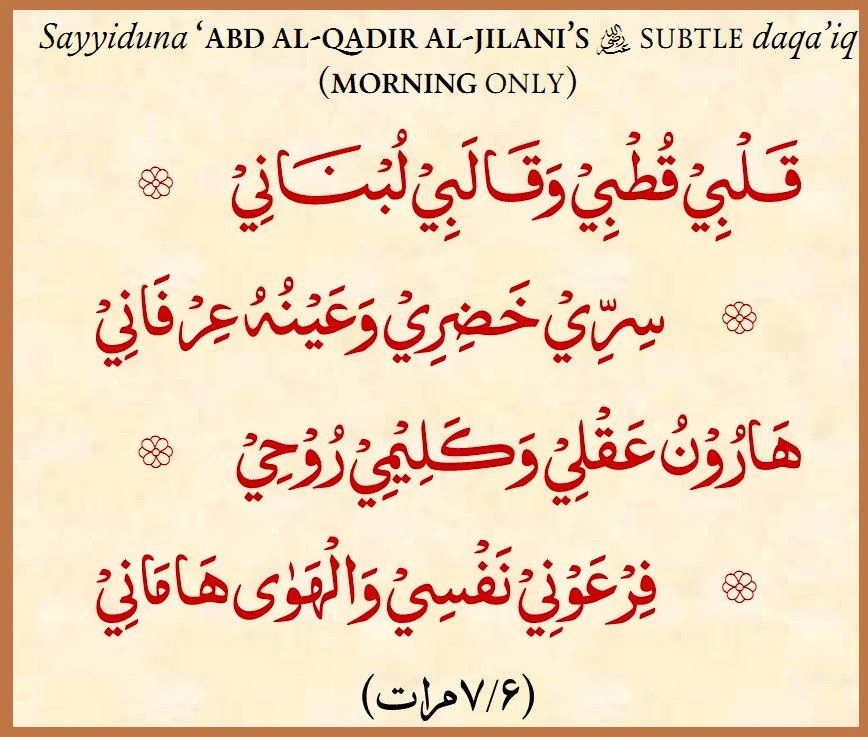 Sayyiduna ‘ABD AL-QADIR AL-JILANI’S ﷺ SUBTLE daqa’iq
(MORNING ONLY)
قَلْبِيْ قُطْبِيْ وَقَالَبِيْ لُبْنَانِيْ
سِرِّيْ خَضِرِيْ وَعَيْنُهُ عِرْفَانِيْ
هَارُوْنُ عَقْلِيْ وَكَلِيْمِيْ رُوْحِيْ
فِرْعَوْنِيْ نَفْسِيْ وَالْهَوٰى هَامَانِيْ
(۷/۶مرات)